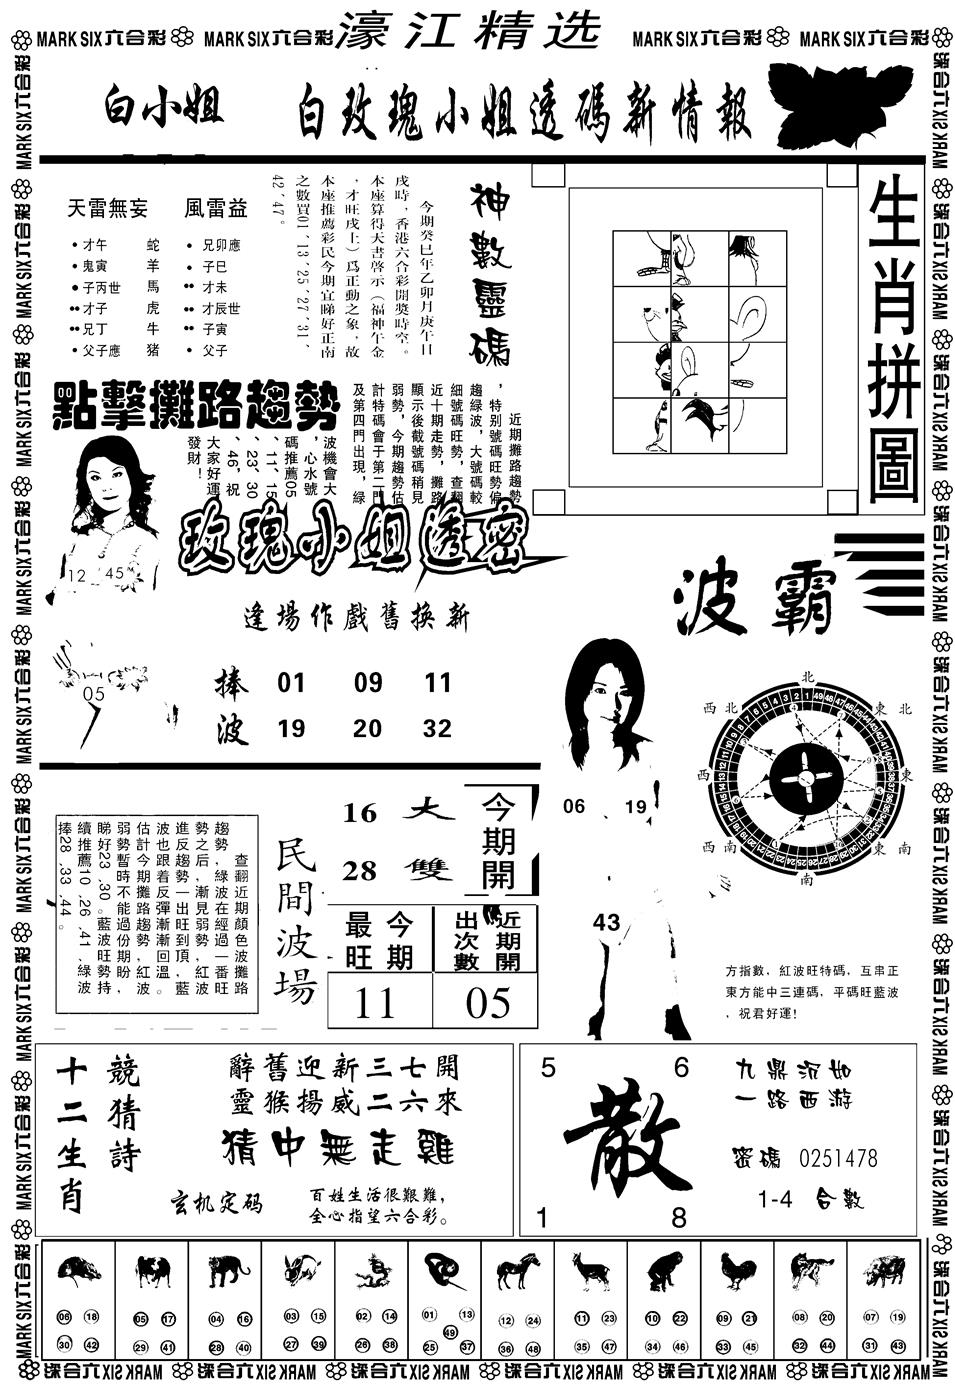 MARK SIX六合彩 MARK SIX六合彩 濠江精选 MARK SIX六合彩 MARK SIX六合彩
白小姐 白玫瑰小姐透碼新情報
天雷無妄 風雷益
才午 蛇 兄卯應
鬼寅 羊 子巳
子丙世 馬 才未
才子 虎 才辰世
兄丁 牛 子寅
父子應 猪 父子
神數靈碼
今期癸巳年乙卯月庚午日
戌時，香港六合彩開獎時空。
本座算得天書啓示（福神午金
，才旺戌上）爲正動之象，故
本座推薦彩民今期宜睇好正南
之數買01、13、25、27、31、
42、47。
生肖拼圖
點擊攤路趨勢
近期攤路趨勢
，特别號碼旺勢偏
趨緑波，大號碼較
細號碼旺勢，查翻
近十期走勢，攤路
顯示後截號碼稍見
弱勢，今期趨勢估
計特碼會于第二門
及第四門出現，緑
波機會大
，心水號
碼推薦05
、11、15
、23、30
、46，祝
大家好運
發財！
12 45
05
玫瑰小姐透密
逢場作戲舊換新
捧波
01 09 11
19 20 32
波霸
北
東北
東
東南
南
西南
西
西北
06 19
43
方指數，紅波旺特碼，互串正
東方能中三連碼，平碼旺藍波
，祝君好運！
查翻近期顔色波攤路
趨勢，緑波在經過一番旺
勢之后，漸見弱勢，紅波
進反趨勢一出旺到頂，藍
波也跟着反彈漸漸回溫。
估計今期攤路趨勢紅波
弱勢暫時不能過份期盼，
睇好23、30。藍波旺勢持
續推薦10、26、41、緑波
捧28、33、44。
民間波場
16 大
28 雙
今期開
最旺 今期
出次數 近期開
11 05
十二生肖
競猜詩
辭舊迎新三七開
靈猴揚威二六來
猜中無走雞
玄机定码
百姓生活很艱難，
全心指望六合彩。
5 6
散
1 8
九鼎沉如
一路西游
密碼 0251478
1-4 合數
06 18 30 42
05 17 29 41
04 16 28 40
03 15 27 39
02 14 26 38
01 13 49 25 37
12 24 36 48
11 23 35 47
10 22 34 46
09 21 33 45
08 20 32 44
07 19 31 43
MARK SIX六合彩 MARK SIX六合彩 MARK SIX六合彩 MARK SIX六合彩 MARK SIX六合彩 MARK SIX六合彩